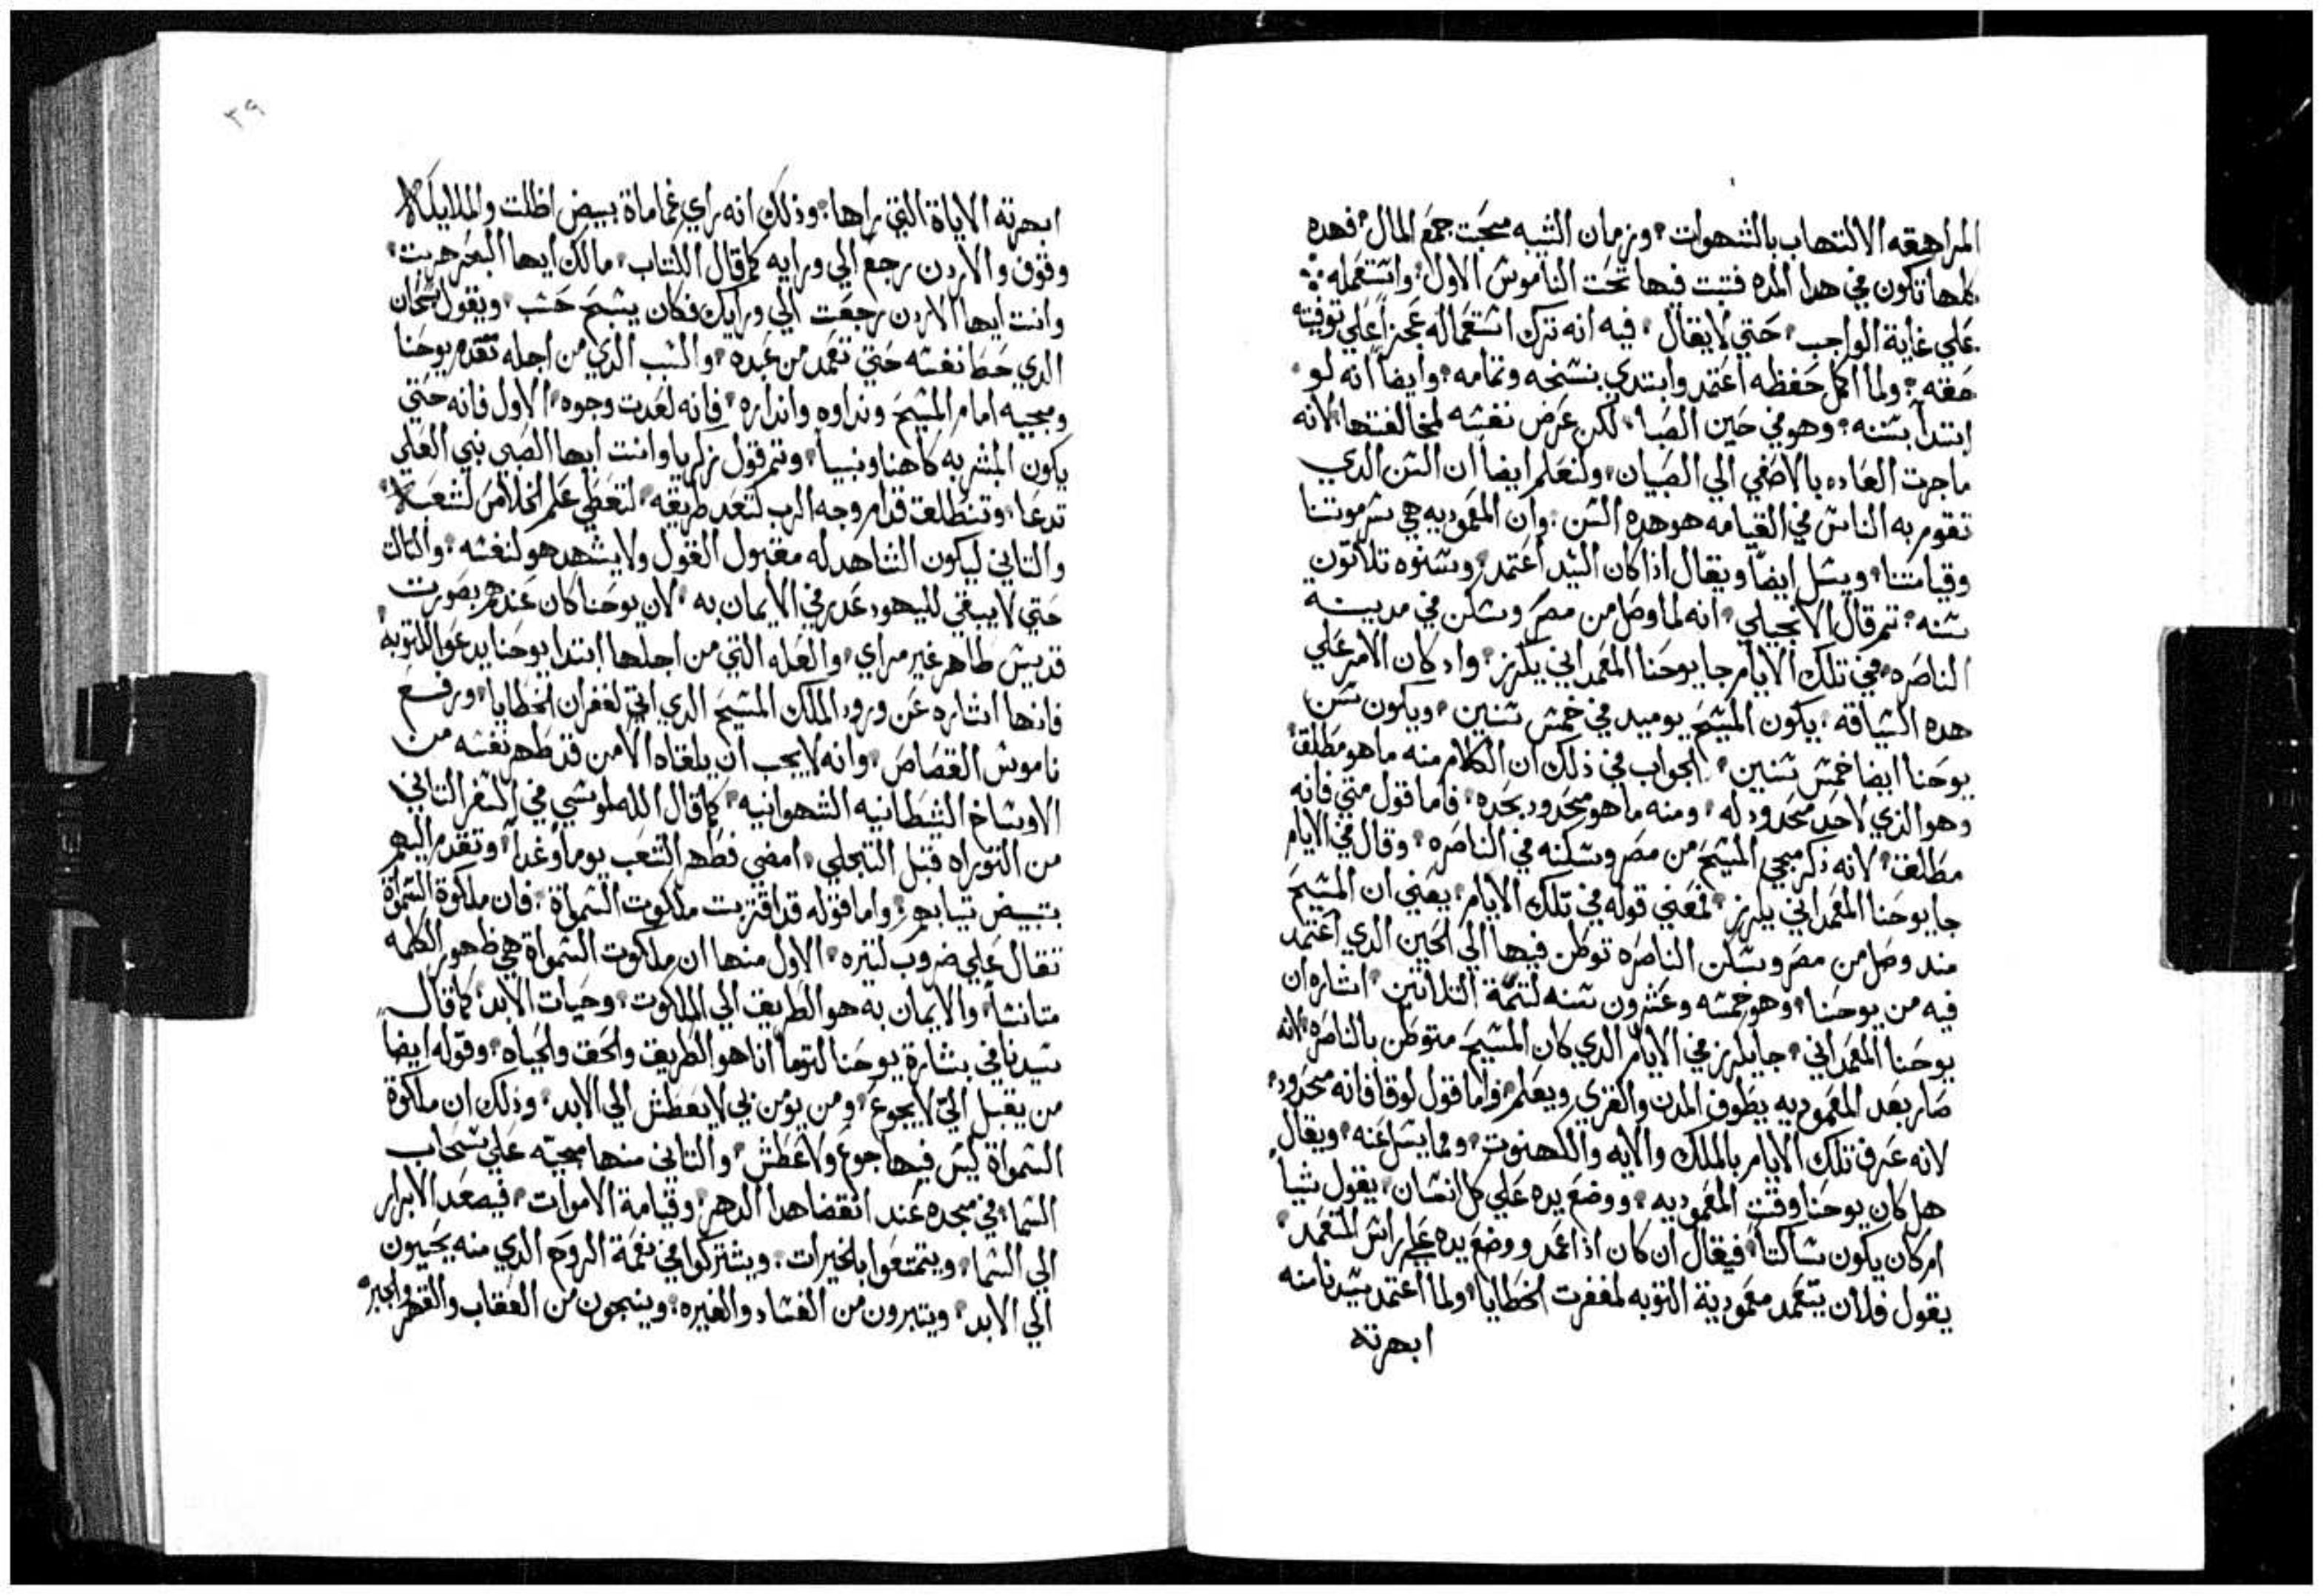 المراهقه الالتهاب بالشهوات، وزمان الشيبه محبت جمع المال، فهده
كلها تكون في هدا المده فتبت فيها تحت الناموس الاول، واستعمله
علي غاية الواجب، حتي لا يقال، فيه انه ترك استعماله عجزاً علي توفيته
حقه، ولما اكمل حفظه اعتمد وابتدي بنسخه وتمامه، وايضاً انه لو
ابتدأ بسنه، وهو في حين الصبا، لكن عرض نفسه لمخالفتها لانه
ما جرت العاده بالاصغي الي الصبيان، ولنعلم ايضاً ان السن الدي
تقوم به الناس في القيامه هو هده السن، وان المعموديه هي سر موتنا
وقيامتنا، ويسل ايضاً ويقال اذا كان السيد اعتمد، وسنوه تلاتون
سنه، تم قال الانجيلي، انه لما وصل من مصر وسكن في مدينة
الناصره، في تلك الايام جا يوحنا المعمداني يكرز، واد كان الامر علي
هده السياقه، يكون المسيح يوميد في خمس سنين، ويكون سن
يوحنا ايضا خمس سنين، الجواب في ذلك ان الكلام منه ما هو مطلق
وهو الذي لا حد محدود له، ومنه ما هو محدود بحده، فاما قول متي فانه
مطلق، لانه ذكر مجي المسيح من مصر وسكنه في الناصره، وقال في الايام
جا يوحنا المعمداني يكرز، فمعني قوله في تلك الايام، يعني ان المسيح
مند وصل من مصر وسكن الناصره توطن فيها الي الحين الدي اعتمد
فيه من يوحنا، وهو خمسه وعشرون سنه لتتمة التلاتين، اشاره ان
يوحنا المعمداني، جا يكرز في الايام الدي كان المسيح متوطن بالناصره لانه
صار بعد المعموديه يطوف المدن والقري ويعلم، واما قول لوقا فانه محدود،
لانه عرف تلك الايام بالملك والايه والكهنوت، ومما يسل عنه، ويقال
هل كان يوحنا وقت المعموديه، ووضع يده علي كل انسان، يقول شياً
ام كان يكون ساكتاً، فيقال ان كان اذا عمد ووضع يده علي راس المتعمد،
يقول فلان يتعمد معمودية التوبه لمغفرت الخطايا، ولما اعتمد سيدنا منه
ابهرته
٣٩
ابهرته الاياة التي راها، وذلك انه راي غماماة بيض اظلت والملايكه
وقوف والاردن رجع الي ورايه كما قال الكتاب، مالك ايها البحر هربت،
وانت ايها الاردن رجعت الي ورايك فكان يسبح حسب، ويقول سبحان
الدي حط نفسه حتي تعمد من عبده، والسبب الدي من اجله تقدم يوحنا
ومجيه امام المسيح ونداوه وانداره، فانه لعدت وجوه، الاول فانه حتي
يكون المبشر به كاهنا ونبياً، وتم قول زكريا وانت ايها الصبي نبي العلي
تدعا، وتنطلق قدام وجه الرب لتعد طريقه، لتعطي علم الخلاص لشعبه
والتاني ليكون الشاهد له مقبول القول ولا يشهد هو لنفسه، والتالت
حتي لا يبقي لليهود عدر في الايمان به، لان يوحنا كان عندهم بصورت
قديس طاهر غير مراي، والعله التي من اجلها ابتدا يوحنا يدعوا للتوبه
فانها اشاره عن ورود الملك المسيح الدي اتي لغفران الخطايا، ورفع
ناموس القصاص، وانه لا يجب ان يلقاه الا من قد طهر نفسه من
الاوساخ الشيطانيه الشهوانيه، كما قال الله لموسي في السفر التاني
من التوراه قبل التجلي، امضي فطهر الشعب يوماً وغداً، وتقدم اليهم
بتبيض تيابهم، واما قوله قد اقتربت ملكوت السمواة، فان ملكوة السمواة
تقال علي ضروب كتيره، الاول منها ان ملكوت السمواة هي ظهور الكلمه
متانساً، والايمان به هو الطريق الي الملكوت، وحيات الابد، كما قال
سيدنا في بشارة يوحنا لتوما انا هو الطريق والحق والحياه، وقوله ايضا
من يقبل الي لا يجوع، ومن يومن بي لا يعطش الي الابد، وذلك ان ملكوة
السمواة ليس فيها جوع ولا عطش، والتاني منها مجيه علي سحاب
السما، في مجده عند انقضا هدا الدهر، وقيامة الاموات، فيصعد الابرار
الي السما، ويتمتعوا بالخيرات، ويشتركوا في نعمة الروح الدي منه يحيون
الي الابد، ويتبرون من الفساد والغيره، وينجون من العقاب والقهر والجبره